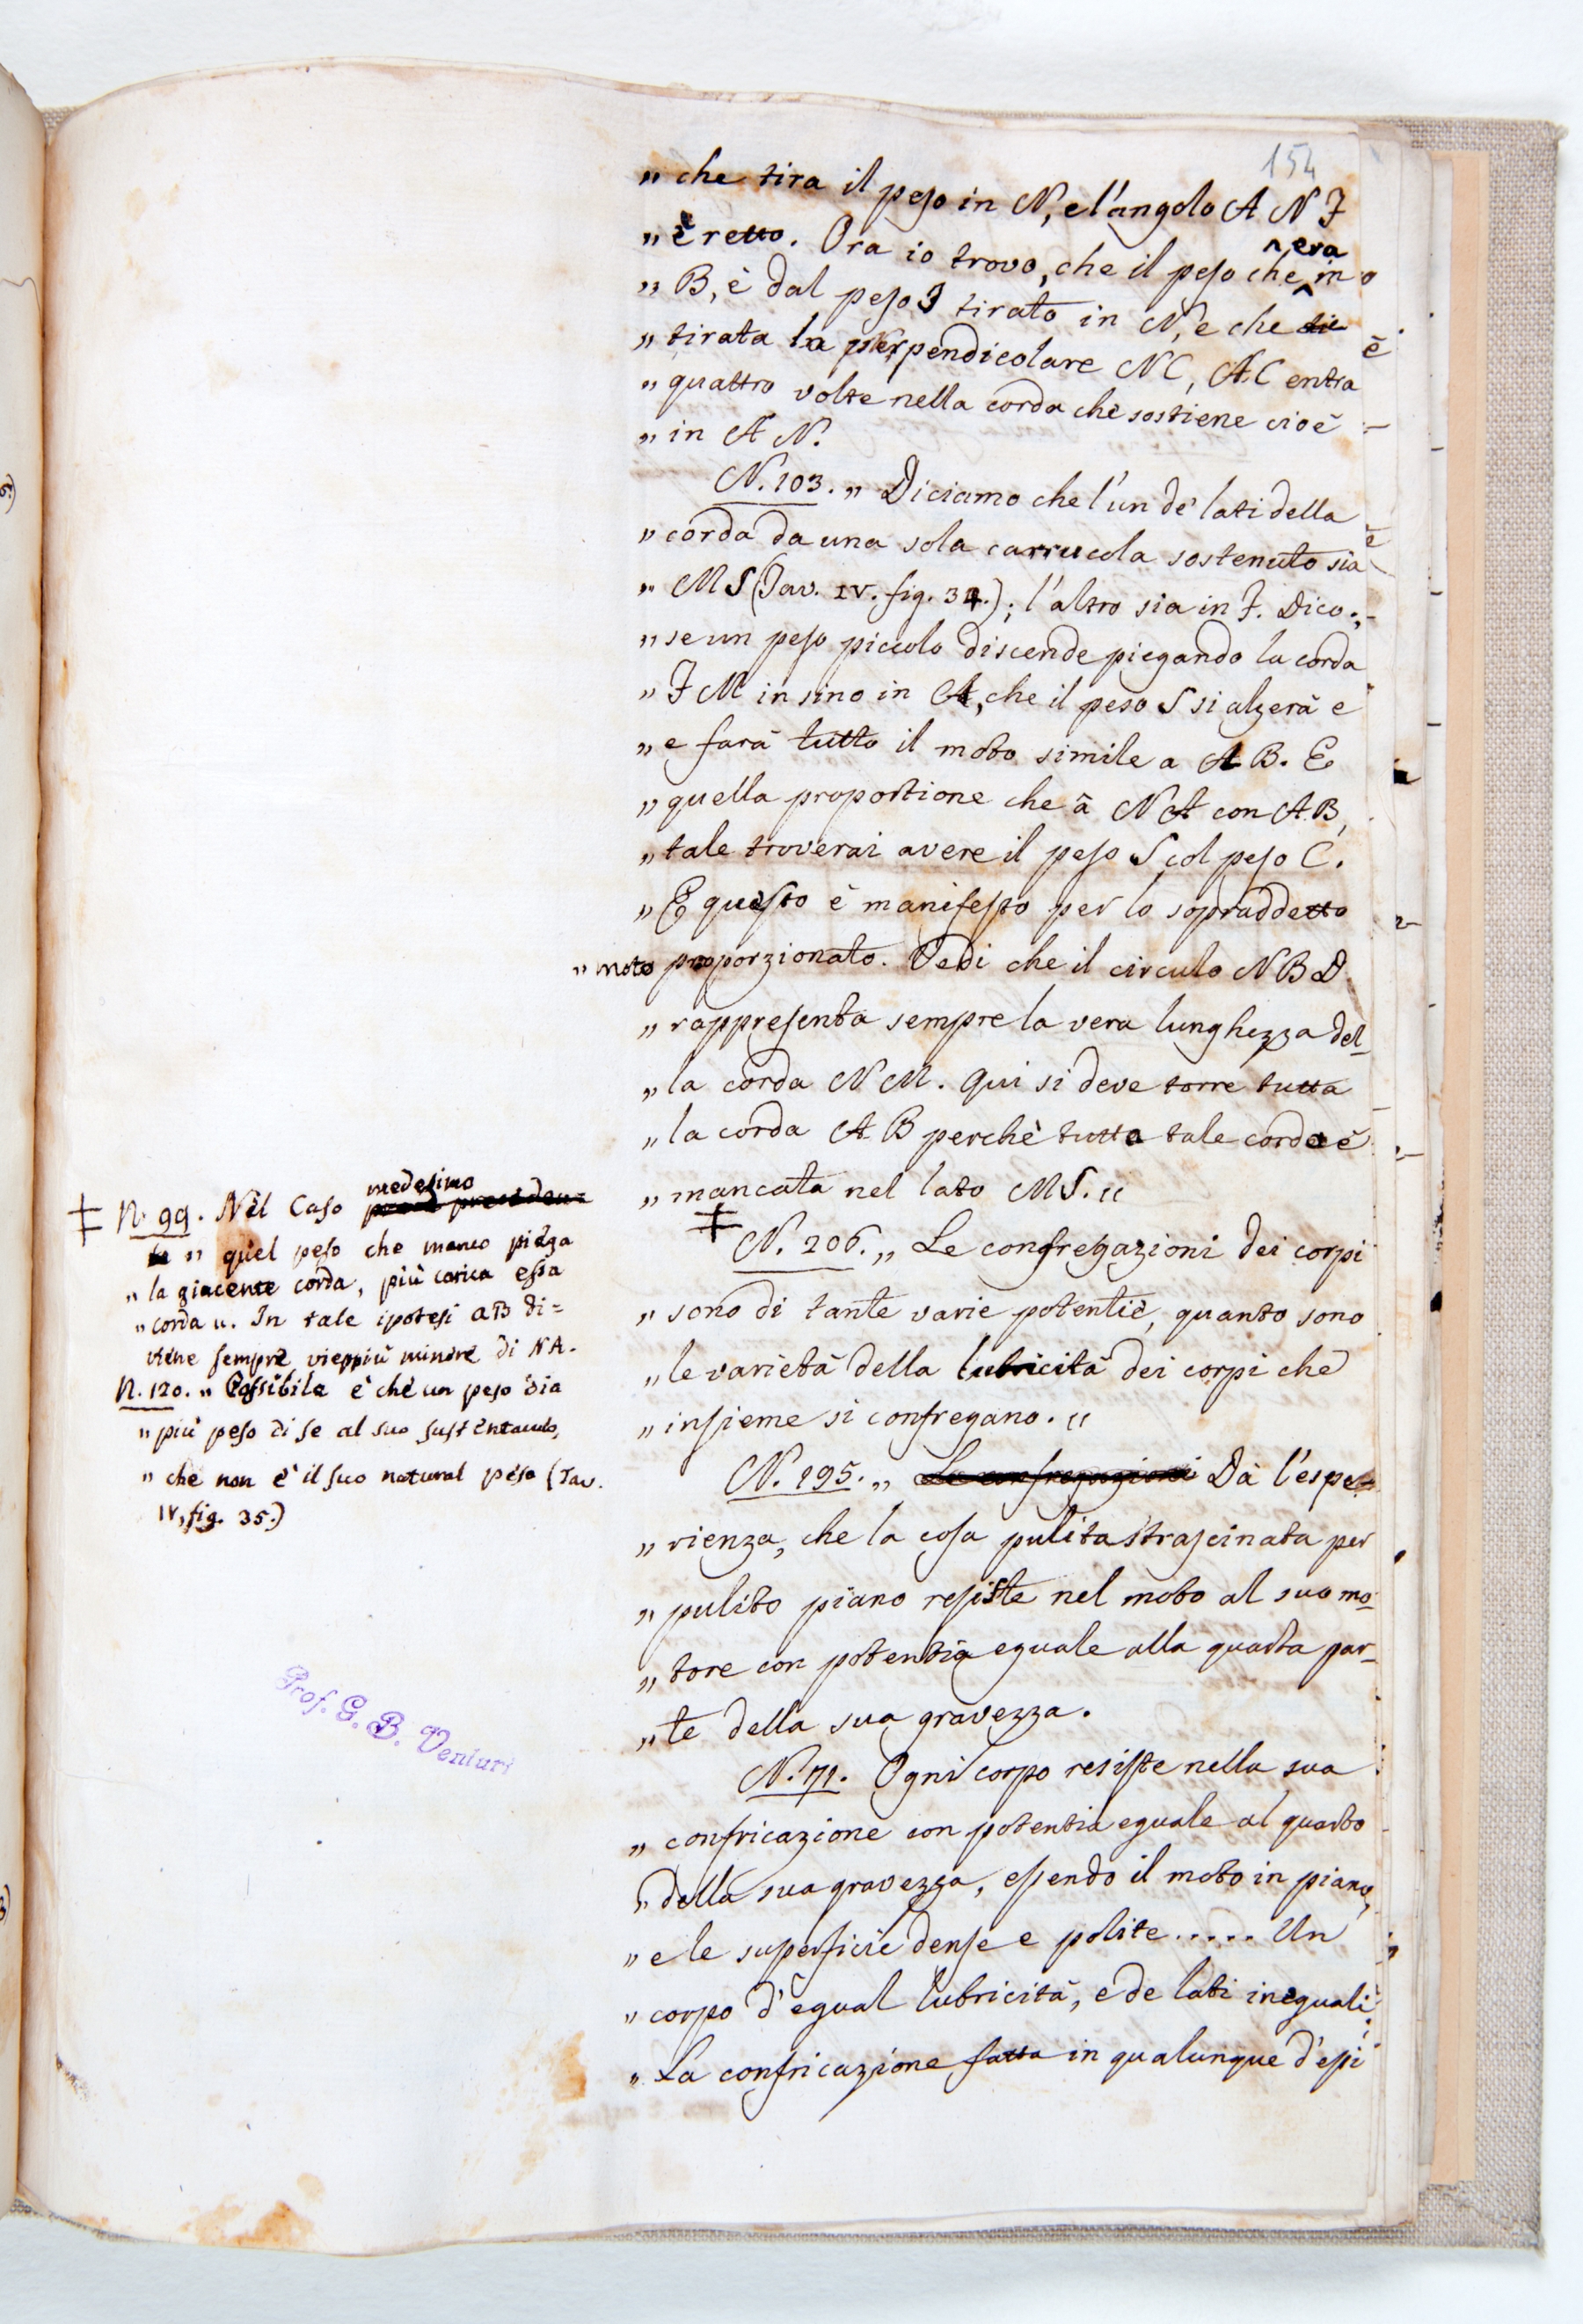 154
„ che tira il peso in N, e l'angolo A N F
„ è retto. Ora io trovo, che il peso che era in
„ B, è dal peso 3 tirato in N, e che
„ tirata la perpendicolare NC, AC entra
„ quattro volte nella corda che sostiene cioè
„ in A N.
N. 103. „ Diciamo che l'un de' lati della
„ corda da una sola carrucola sostenuto sia
„ M S (Tav. IV. fig. 34.); l'altro sia in F. Dico.,
„ se un peso piccolo discende piegando la corda
„ F M in sino in A, che il peso S si alzerà e
„ e farà tutto il moto simile a A B. E
„ quella proportione che à NA con AB,
„ tale troverai avere il peso S col peso C.
„ E questo è manifesto per lo sopraddetto
„ moto proporzionato. Vedi che il circulo NBD
„ rappresenta sempre la vera lunghezza del-
„ la corda N M. Qui si deve torre tutta
„ la corda A B perchè tutta tale corda è
„ mancata nel lato M S. „
‡ N. 206. „ Le confregazioni dei corpi
„ sono di tante varie potentie, quanto sono
„ le varietà della lubricità dei corpi che
„ insieme si confregano. „
N. 195. „ Le confregazioni Dà l'espe-
„ rienza, che la cosa pulita strascinata per
„ pulito piano resiste nel moto al suo mo-
„ tore con potentia eguale alla quarta par-
„ te della sua gravezza.
N. 71. Ogni corpo resiste nella sua
„ confricazione con potentia eguale al quarto
„ della sua gravezza, essendo il moto in piano,
„ e le superficie dense e polite..... Un
„ corpo d'egual lubricità, e de lati ineguali
„ La confricazione fatta in qualunque d'essi
‡ N. 99. Nel Caso medesimo
„ quel peso che manco piega
„ la giacente corda, più carica essa
„ corda „. In tale ipotesi AB di=
viene sempre vieppiù minore di NA.
N. 120. „ Possibile è che un peso dia
„ più peso di se al suo sustentaculo,
„ che non è il suo natural peso (Tav.
IV, fig. 35.)
Prof. G. B. Venturi